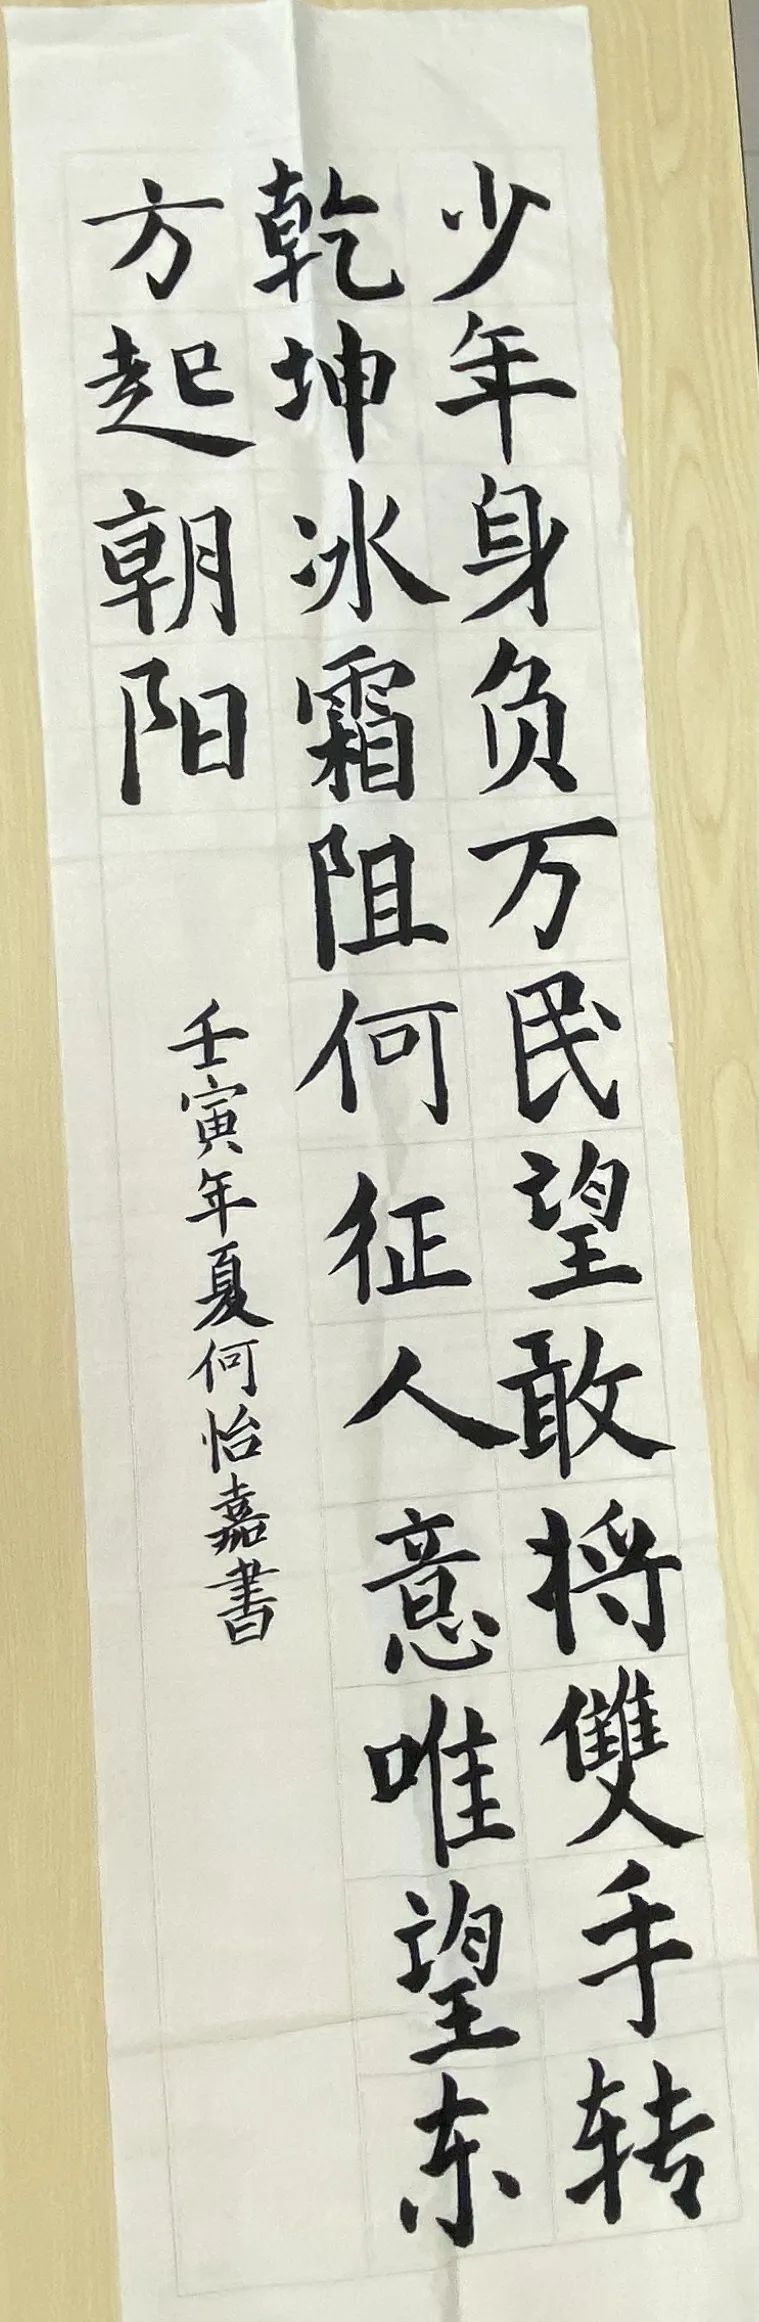 少年身负万民望敢将雙手转
乾坤冰霜阻何征人意唯望东
方起朝阳
壬寅年夏何怡嘉書